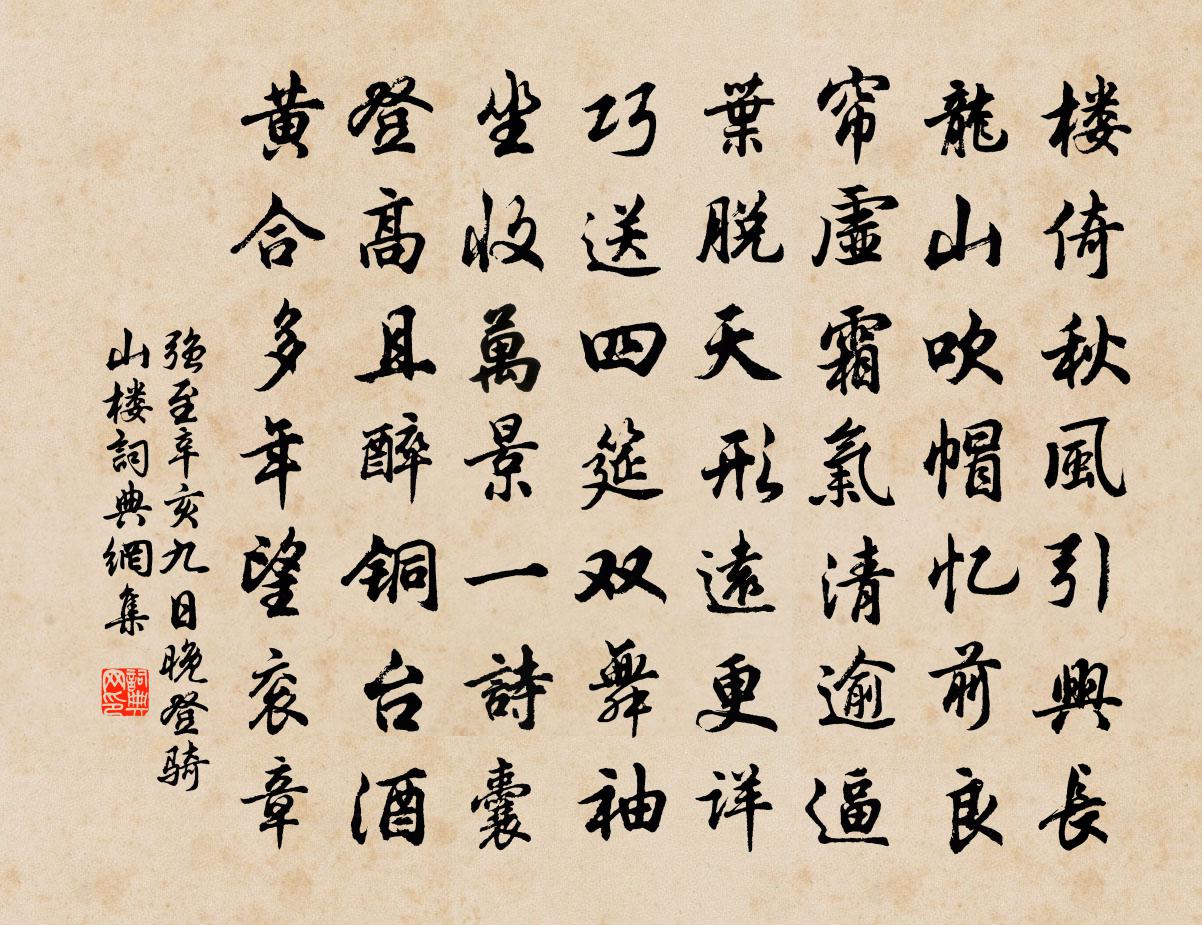 楼倚秋風引興長
龍山吹帽忆前良
帘虛霜氣清逾逼
葉脱天形遠更详
巧送四筵双舞袖
坐收萬景一詩囊
登高且醉铜台酒
黄合多年望衮章
强至辛亥九日晚登骑
山楼詞典網集
詞典
网印